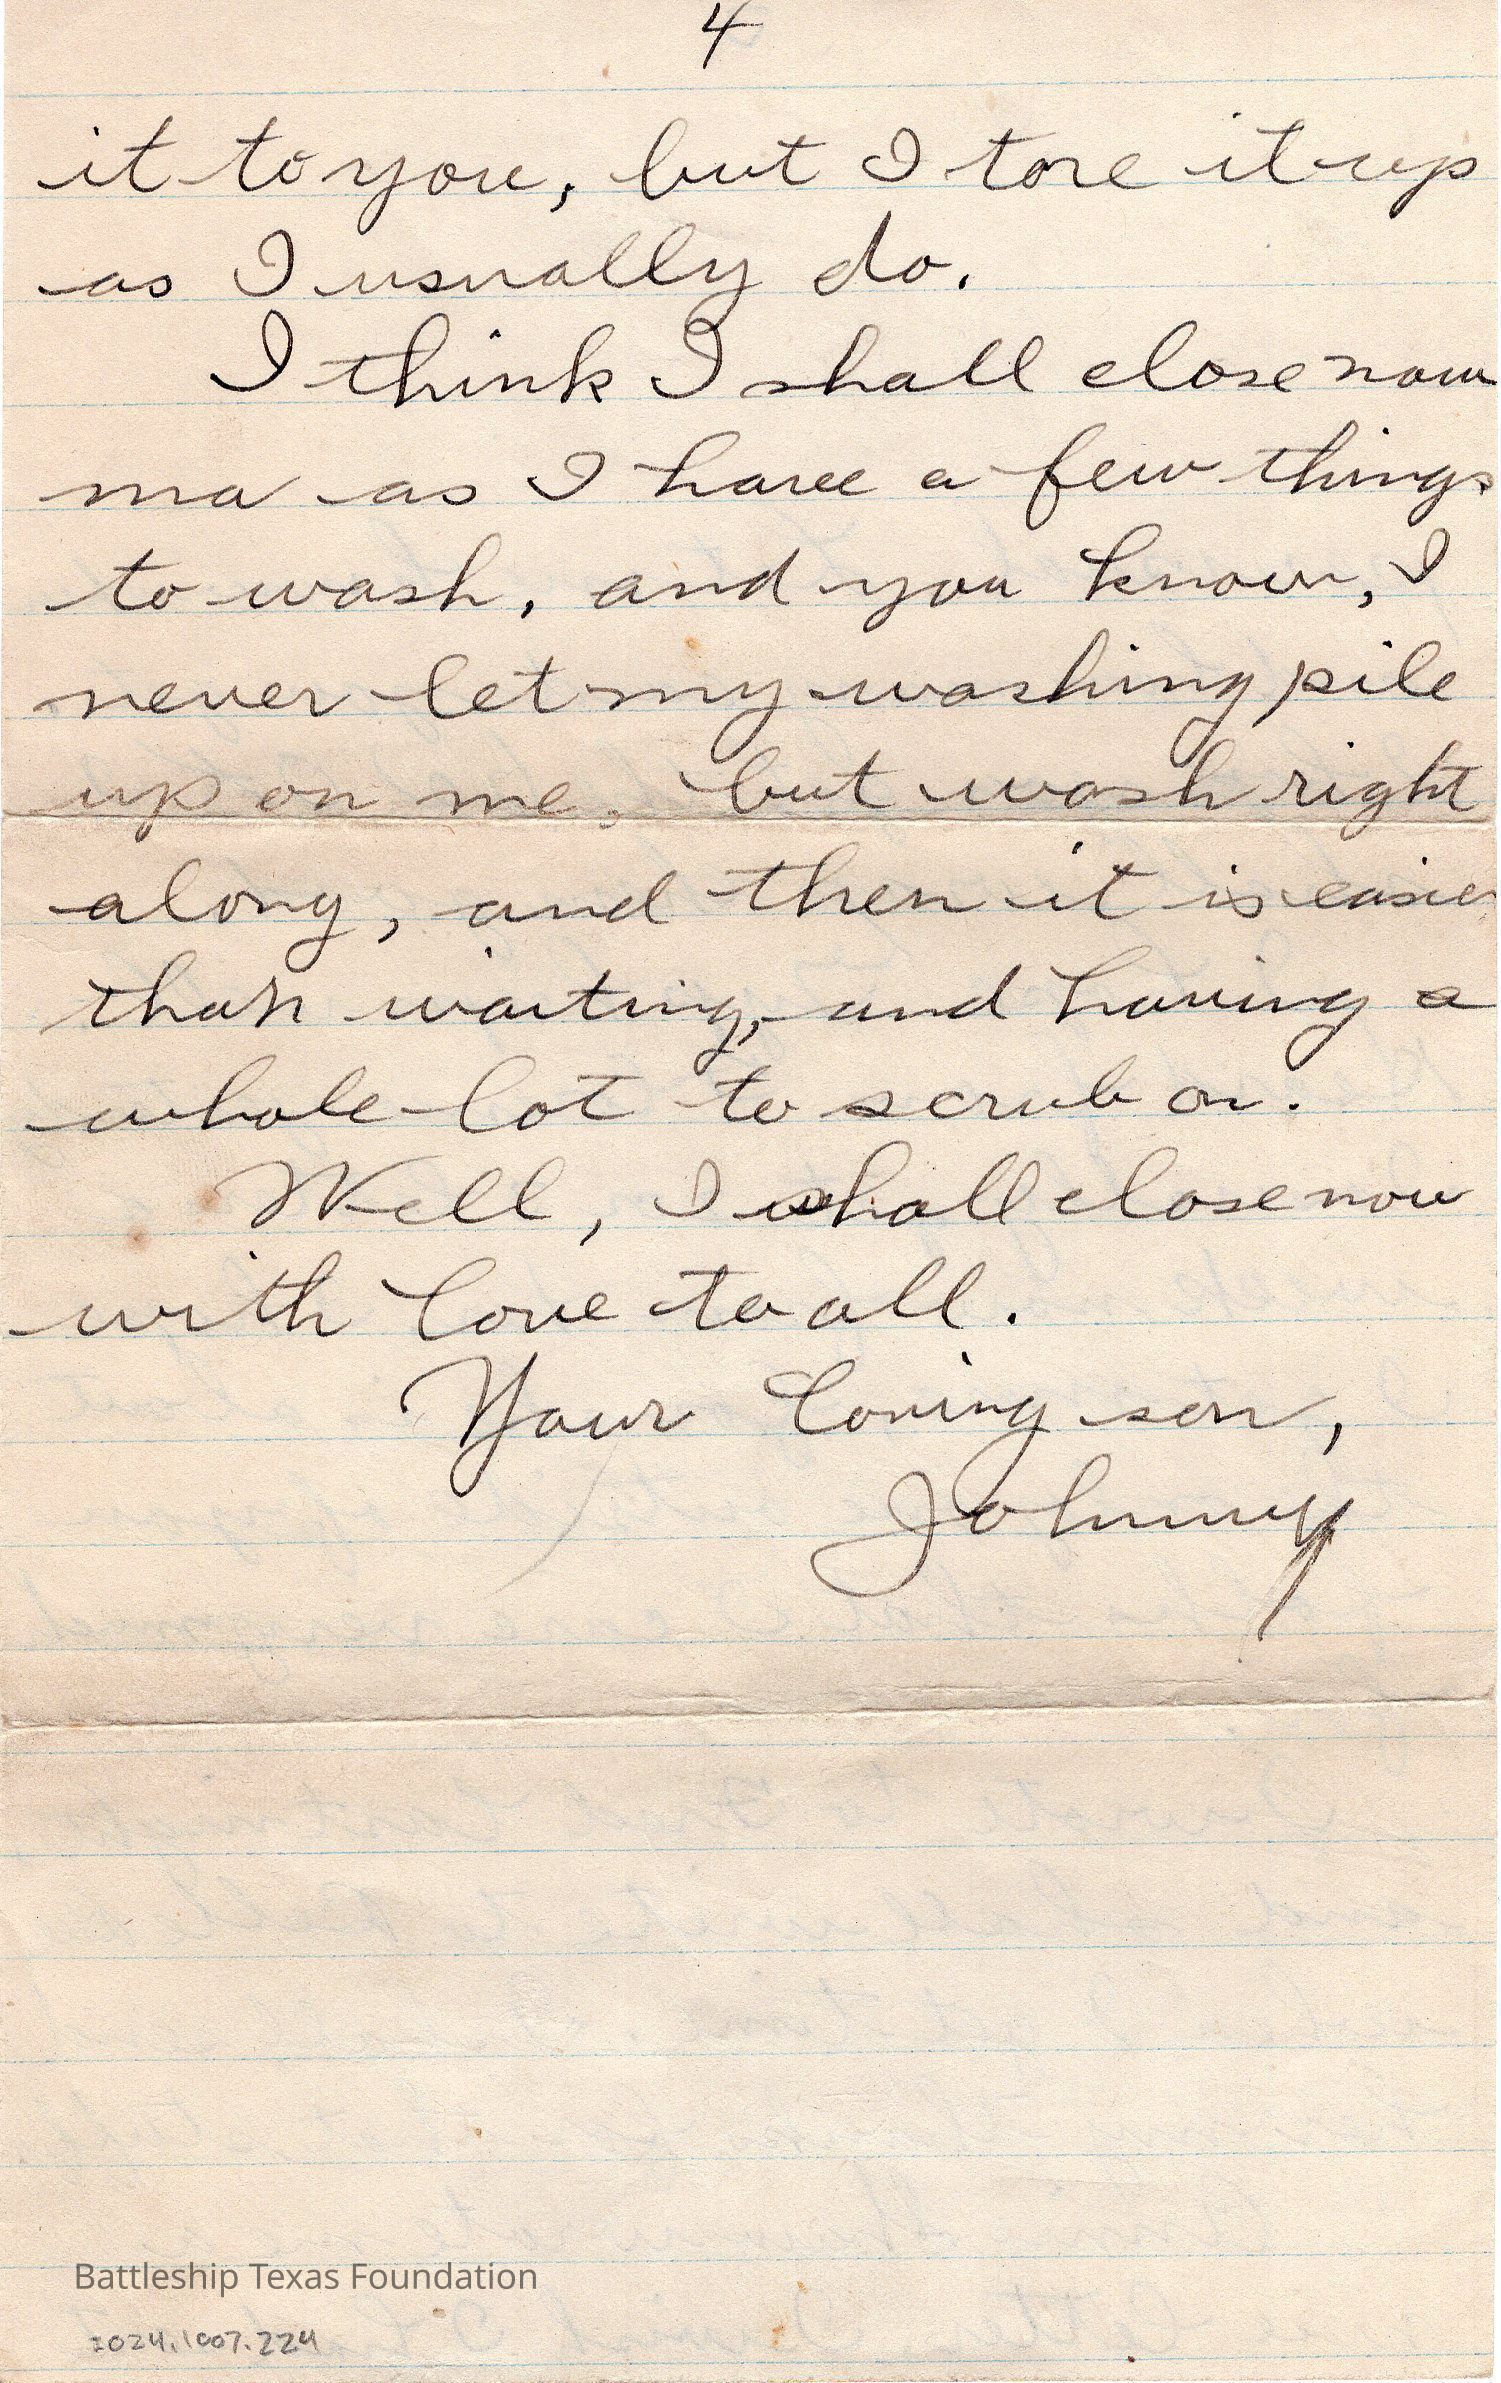 4
it to you, but I tore it up
as I usually do.
I think I shall close now
ma as I have a few things
to wash, and you know, I
never let my washing pile
up on me, but wash right
along, and then it is easier
than waiting, and having a
whole lot to scrub on.
Well, I shall close now
with love to all.
Your loving son,
Johnny
Battleship Texas Foundation
2024.1007.224